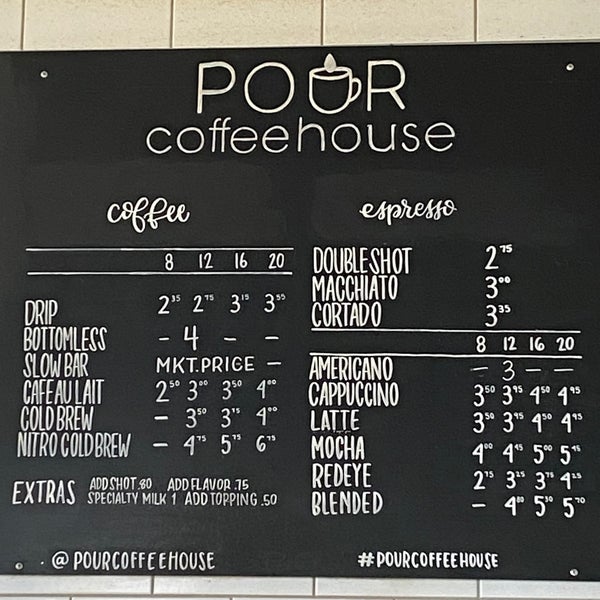 POUR
coffeehouse
coffee
8 12 16 20
DRIP 2.35 2.75 3.15 3.55
BOTTOMLESS - 4 - -
SLOW BAR MKT.PRICE -
CAFE AU LAIT 2.50 3.00 3.50 4.00
COLD BREW - 3.50 3.75 4.00
NITRO COLD BREW - 4.75 5.75 6.75
EXTRAS ADD SHOT .80 ADD FLAVOR .75
SPECIALTY MILK 1 ADD TOPPING .50
@POURCOFFEEHOUSE
espresso
DOUBLE SHOT 2.75
MACCHIATO 3.00
CORTADO 3.35
8 12 16 20
AMERICANO - 3 - -
CAPPUCCINO 3.50 3.95 4.50 4.95
LATTE 3.50 3.95 4.50 4.95
MOCHA 4.00 4.45 5.00 5.45
REDEYE 2.75 3.25 3.75 4.25
BLENDED - 4.80 5.30 5.70
#POURCOFFEEHOUSE